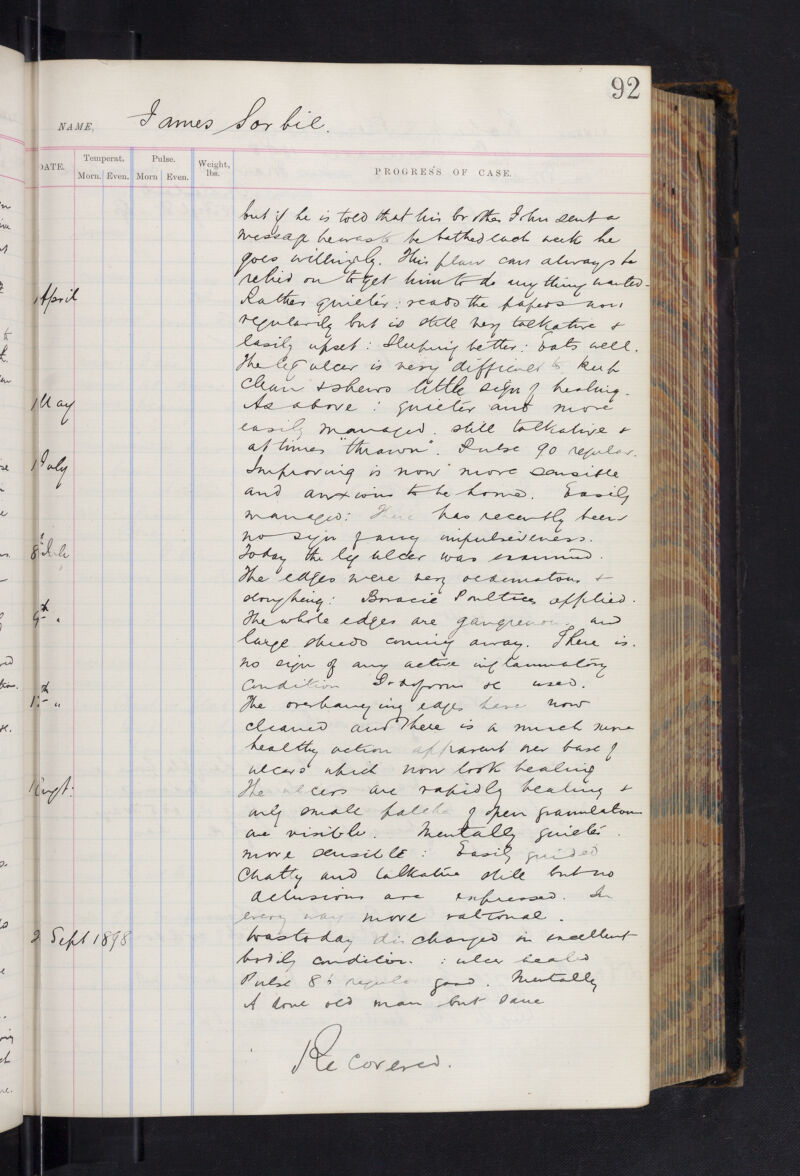 92
NAME, James Sorbie.
DATE. Temperat. Pulse. Weight, lbs. PROGRESS OF CASE.
Morn. Even. Morn Even.
but if he is told that his brother John sent a
message he was to be bathed each week he
goes willingly. This plan can always be
relied on to get him to do anything wanted.
1 April Rather quieter: reads the papers now
regularily but is still very talkative &
easily upset: Sleeping better: Eats well.
The leg ulcer is very difficult to keep
clean & shews little sign of healing.
1 May As above: quieter and more
easily managed. still talkative &
at times "thrawn". Pulse 90 regular.
1 July Improving is now more sensible
and anxious to be home. Easily
managed: There has recently been
no sign of any impulsiveness.
8th July Today the leg ulcer was examined.
The edges were very oedematous &
sloughing: Boracic Poultices applied.
9th " The whole edges are gangrenous and
large shreds coming away. There is
no sign of any active inflammatory
condition Iodoform &c used.
th " The overhanging edges have now
cleaned and there is a much more
healthy action apparent over base of
ulcers which now look healing
1 Augt: The ulcers are rapidly healing &
only small patches of open granulation
are visible. Mentally quieter.
more sensible: Easily guided
Chatty and talkative still but no
delusions are expressed. In
every way more rational.
2 Sept 1898 Was today discharged in excellent
bodily condition: ulcer healed
Pulse regular good. Mentally
A old man but sane
Recovered.